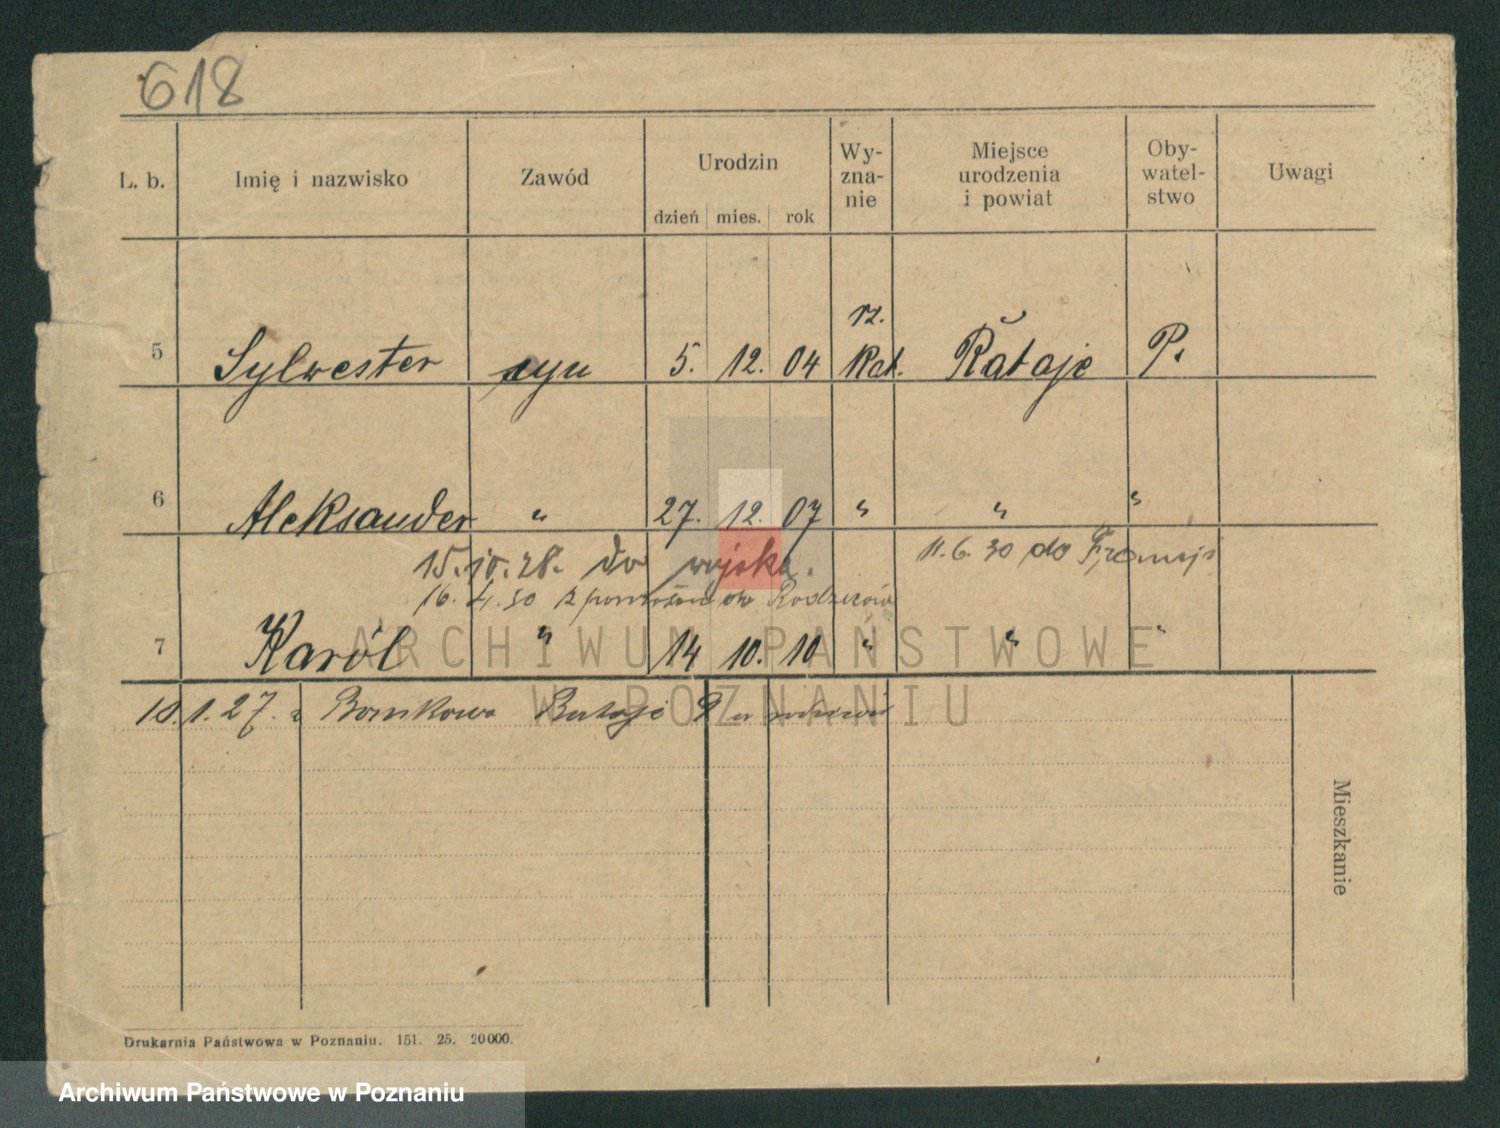 618
L. b. Imię i nazwisko Zawód Urodzin Wy-zna-nie Miejsce urodzenia i powiat Oby-watel-stwo Uwagi
dzień mies. rok
rz.
5 Sylwester syn 5. 12. 04 Kat. Rataje P.
6 Aleksander " 27. 12. 07 " " "
15.10.28. do wojska. 11.6.30 do Francji
16.4.30 z powrotem do Rodziców
7 Karól " 14 10. 10 " " "
ARCHIWUM PAŃSTWOWE
W POZNANIU
18.1.27. z Rataje
Mieszkanie
Drukarnia Państwowa w Poznaniu. 151. 25. 20000.
Archiwum Państwowe w Poznaniu